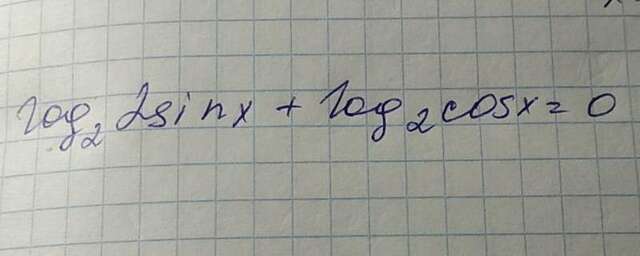 log₂ 2sin x + log₂ cos x = 0